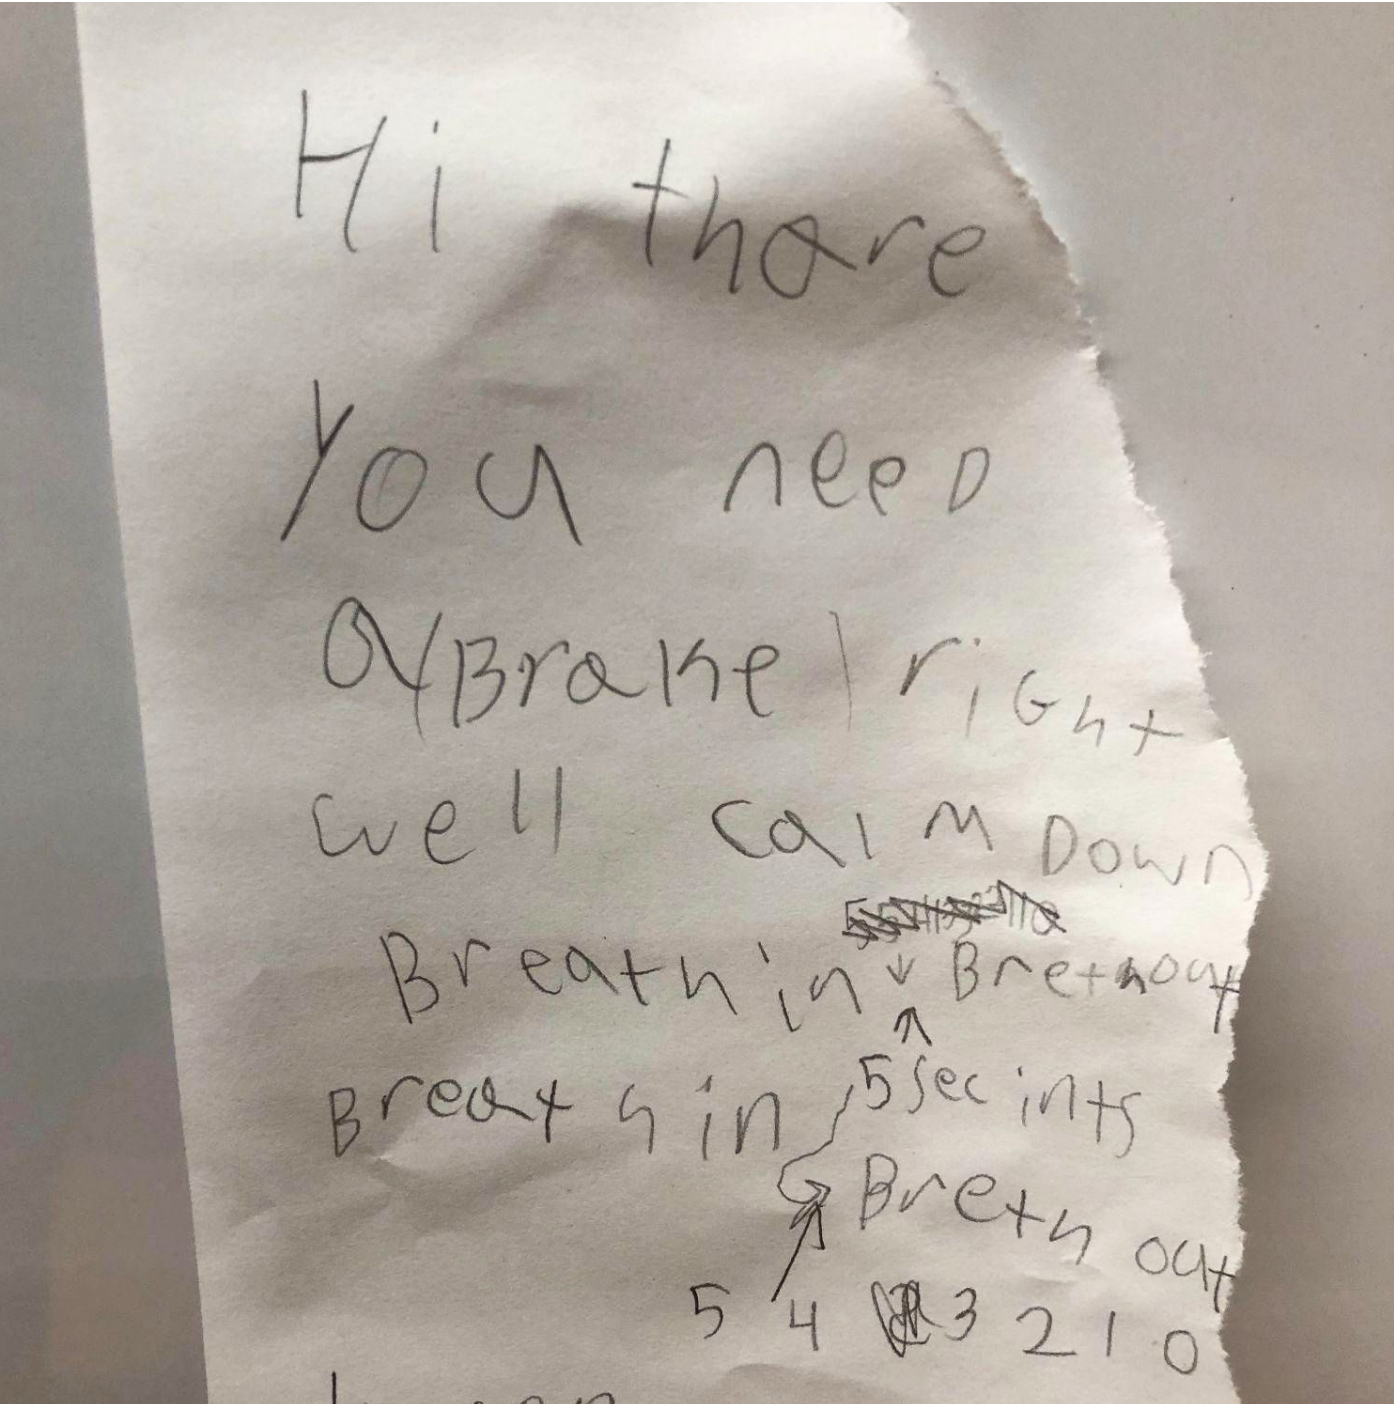 Hi thare
You neeD
a/Brake/riGht
well calm Down
Breath in ↓ Brethout
↑
Breath in 5 secints
Breth out
5 4 3 2 1 0